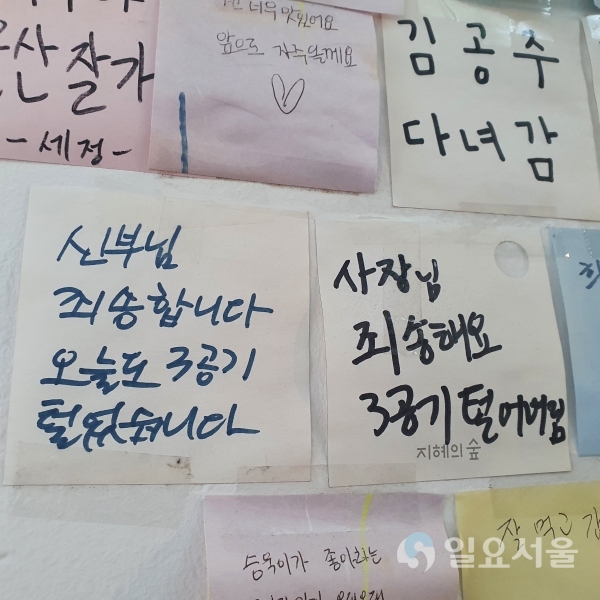 잘가
-세정-
너무 맛있어요
앞으로 자주올께요
김공수
다녀감
신부님
죄송합니다
오늘도 3공기
털었습니다
사장님
죄송해요
3공기 털어버림
지혜의 숲
승욱이가 좋아하는
잘 먹고
일요서울